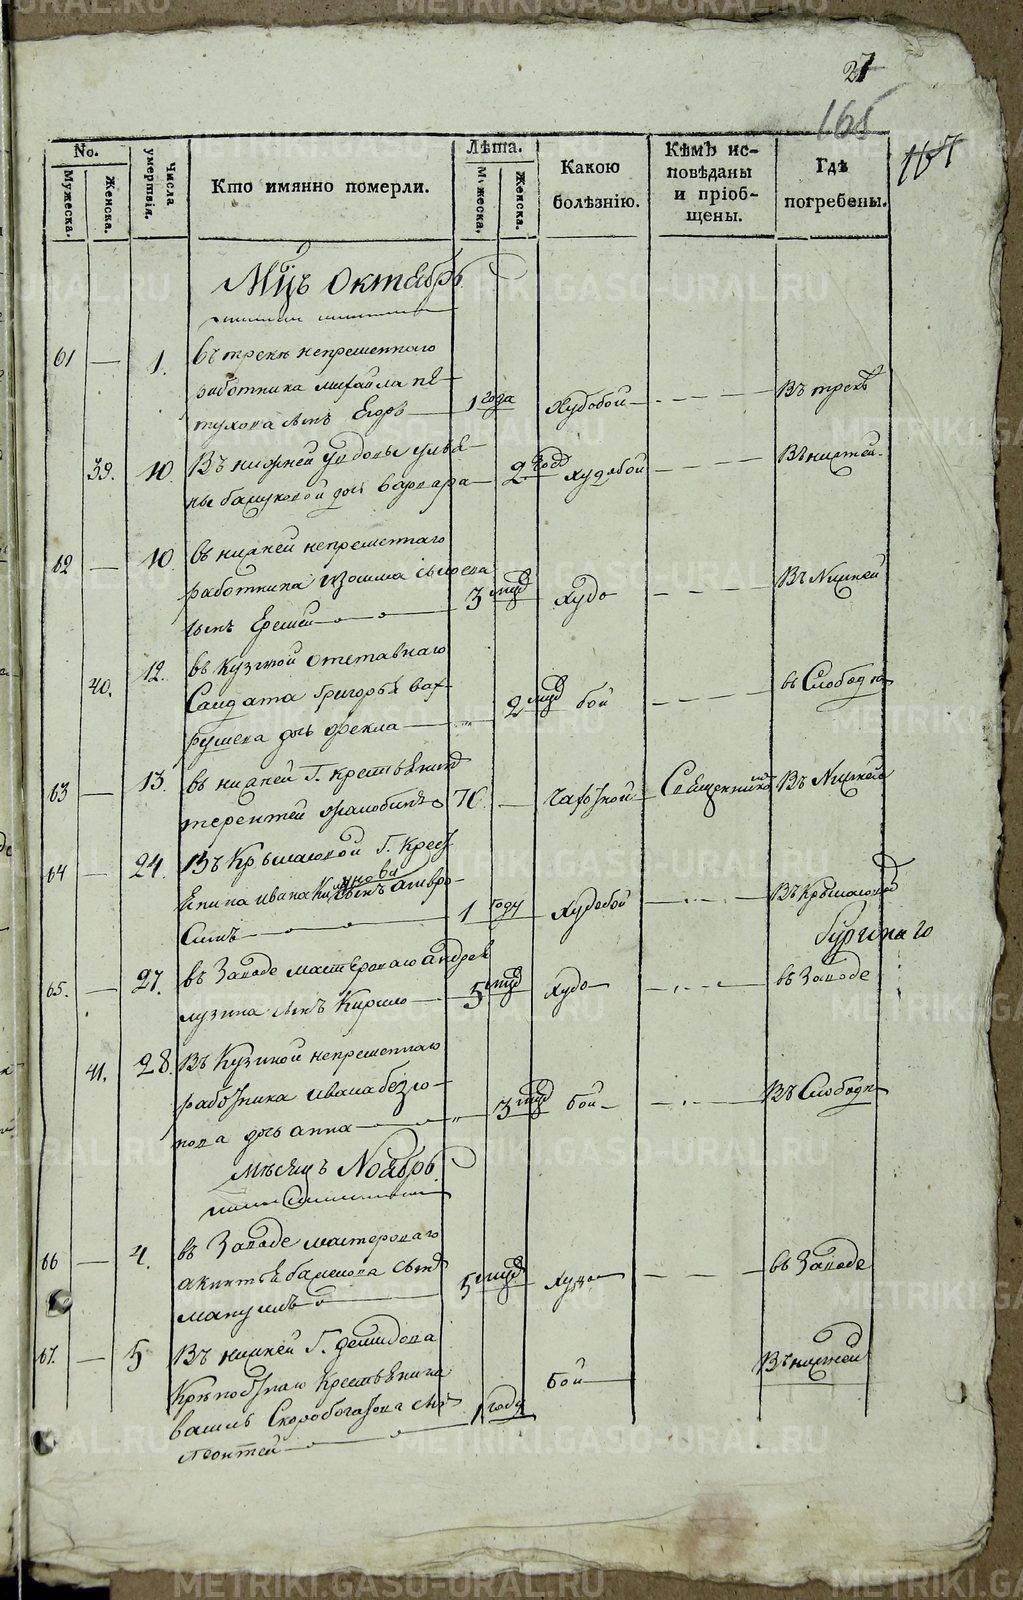 27
165
167
No.
Мужеска.
Женска.
Числа умертвія.
Кто имянно померли.
Лѣта.
Мужеска.
Женска.
Какою болѣзнію.
Кѣмъ исповѣданы и пріобщены.
Гдѣ погребены.
Мцъ Октябрь
61 — 1. въ трекѣ непременнаго
работника михайла пе-
тухова сынъ Егоръ — 1 года худобой — Въ трекѣ
39. 10. Въ нижней удовы улья-
ны дочь варвара — 2 худобой Въ нижней
62 — 10. въ нижней непременнаго
работника изосима сысоева
сынъ Еремей — 3 худо — Въ Нижней
40. 12. въ Кузиной отставнаго
Салдата григорья вах-
рушева дочь Фекла — 2 бои въ Слободѣ
63 — 13. въ нижней Г. крестьянинъ
терентей 70. чахоткой Священникомъ Въ Нижней
64 — 24. Въ Крыласовой Г. Крест
янина ивана сынъ амвро-
симъ — 1 году худобой Въ Крыласовой
65. — 27. въ Заводе мастероваго андрея
лузина сынъ Кирило — 5 худо въ Заводе
41. 28. Въ Кузиной непременнаго
работника ивана безго-
дова дочь анна — 3 бои Въ Слободѣ
мѣсяцъ Ноябрь
66 — 4. въ Заводе мастероваго
сынъ
мануилъ — 5 худо въ Заводе
67. — 5 Въ нижней Г. демидова
Крѣпостнаго Крестьянина
василья Скоробогатова сынъ
леонтей — 1 году бои Въ нижней
METRIKI.GASO-URAL.RU